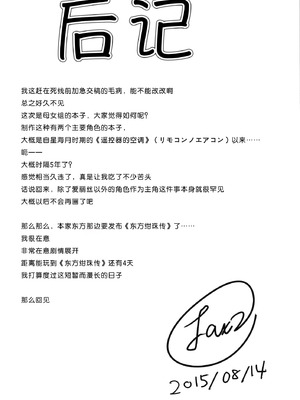 后记
我这赶在死线前加急交稿的毛病，能不能改改啊
总之好久不见
这次是母女组的本子，大家觉得如何呢？
制作这种有两个主要角色的本子，
大概是自星海月时期的《遥控器的空调》（リモコンノエアコン）以来……
呃一一
大概时隔5年了？
感觉相当久违了，真是让我吃了不少苦头
话说回来，除了爱丽丝以外的角色作为主角这件事本身就很罕见
大概以后不会再画了吧
那么那么，本家东方那边要发布《东方绀珠传》了……
我很在意
非常在意剧情展开
距离能玩到《东方绀珠传》还有4天
我打算度过这短暂而漫长的日子
那么回见
2015/08/14